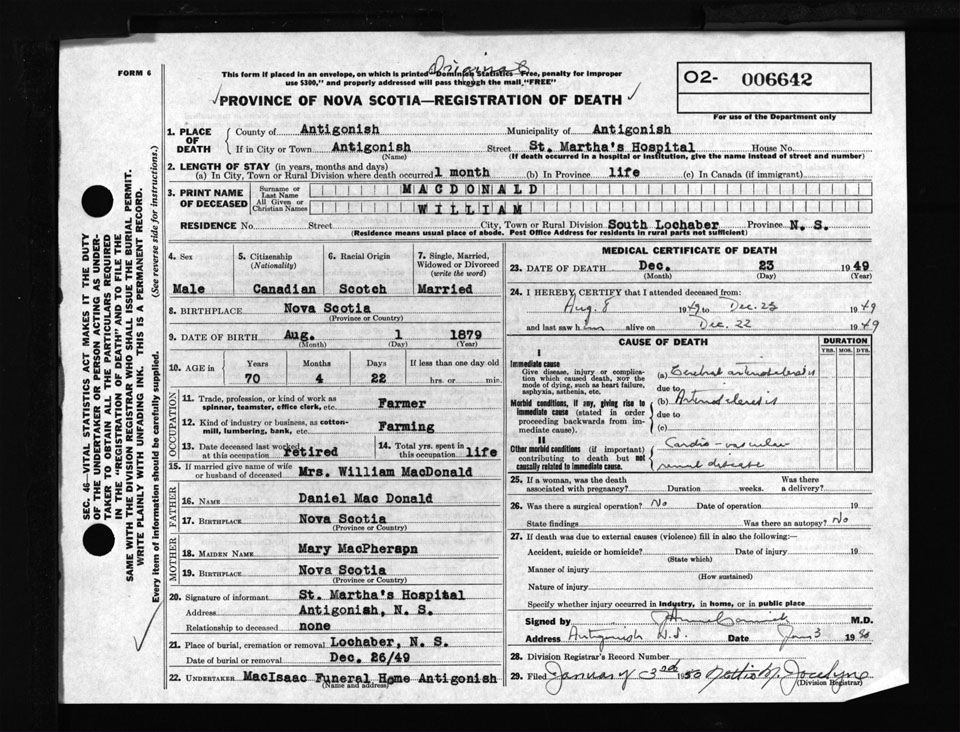 FORM 6
Original
This form if placed in an envelope, on which is printed "Dominion Statistics—Free, penalty for improper
use $300," and properly addressed will pass through the mail "FREE"
PROVINCE OF NOVA SCOTIA—REGISTRATION OF DEATH
O2- 006642
For use of the Department only
SEC. 46—VITAL STATISTICS ACT MAKES IT THE DUTY
OF THE UNDERTAKER OR PERSON ACTING AS UNDER-
TAKER TO OBTAIN ALL THE PARTICULARS REQUIRED
IN THE "REGISTRATION OF DEATH" AND TO FILE THE
SAME WITH THE DIVISION REGISTRAR WHO SHALL ISSUE THE BURIAL PERMIT.
WRITE PLAINLY WITH UNFADING INK. THIS IS A PERMANENT RECORD.
Every item of information should be carefully supplied. (See reverse side for instructions.)
1. PLACE OF DEATH
County of Antigonish Municipality of Antigonish
If in City or Town Antigonish Street St. Martha's Hospital House No.
(Name) (If death occurred in a hospital or institution, give the name instead of street and number)
2. LENGTH OF STAY (in years, months and days)
(a) In City, Town or Rural Division where death occurred 1 month (b) In Province life (c) In Canada (if immigrant)
3. PRINT NAME OF DECEASED
Surname or Last Name MACDONALD
All Given or Christian Names WILLIAM
RESIDENCE No. Street City, Town or Rural Division South Lochaber Province N. S.
(Residence means usual place of abode. Post Office Address for residents in rural parts not sufficient)
4. Sex 5. Citizenship (Nationality) 6. Racial Origin 7. Single, Married, Widowed or Divorced (write the word)
Male Canadian Scotch Married
8. BIRTHPLACE Nova Scotia
(Province or Country)
9. DATE OF BIRTH Aug. 1 1879
(Month) (Day) (Year)
10. AGE in Years Months Days If less than one day old
70 4 22 hrs. or min.
OCCUPATION
11. Trade, profession, or kind of work as
spinner, teamster, office clerk, etc. Farmer
12. Kind of industry or business, as cotton-
mill, lumbering, bank, etc. Farming
13. Date deceased last worked at this occupation retired 14. Total yrs. spent in this occupation life
15. If married give name of wife
or husband of deceased Mrs. William MacDonald
FATHER
16. NAME Daniel Mac Donald
17. BIRTHPLACE Nova Scotia
(Province or Country)
MOTHER
18. MAIDEN NAME Mary MacPherapn
19. BIRTHPLACE Nova Scotia
(Province or Country)
20. Signature of informant St. Martha's Hospital
Address Antigonish, N. S.
Relationship to deceased none
21. Place of burial, cremation or removal Lochaber, N. S.
Date of burial or removal Dec. 26/49
22. UNDERTAKER MacIsaac Funeral Home Antigonish
(Name and address)
MEDICAL CERTIFICATE OF DEATH
23. DATE OF DEATH Dec. 23 1949
(Month) (Day) (Year)
24. I HEREBY CERTIFY that I attended deceased from:
Aug. 8 1949 to Dec. 23 1949
and last saw him alive on Dec. 22 1949
CAUSE OF DEATH DURATION
YRS. MOS. DYS.
I
Immediate cause
Give disease, injury or complica-
tion which caused death, not the
mode of dying, such as heart failure,
asphyxia, asthenia, etc.
(a) Cerebral arteriosclerosis
due to
Morbid conditions, if any, giving rise to
immediate cause (stated in order
proceeding backwards from im-
mediate cause).
(b) Arteriosclerosis
due to
(c)
II
Other morbid conditions (if important)
contributing to death but not
causally related to immediate cause.
Cardio-vascular
renal disease
25. If a woman, was the death Was there
associated with pregnancy? Duration weeks. a delivery?
26. Was there a surgical operation? No Date of operation 19
State findings Was there an autopsy? No
27. If death was due to external causes (violence) fill in also the following:—
Accident, suicide or homicide? Date of injury 19
(State which)
Manner of injury
(How sustained)
Nature of injury
Specify whether injury occurred in industry, in home, or in public place
Signed by M.D.
Address Antigonish N.S. Date Jan 3 1950
28. Division Registrar's Record Number
29. Filed January 3rd 1950 Nettie M. Jocelyne
(Division Registrar)